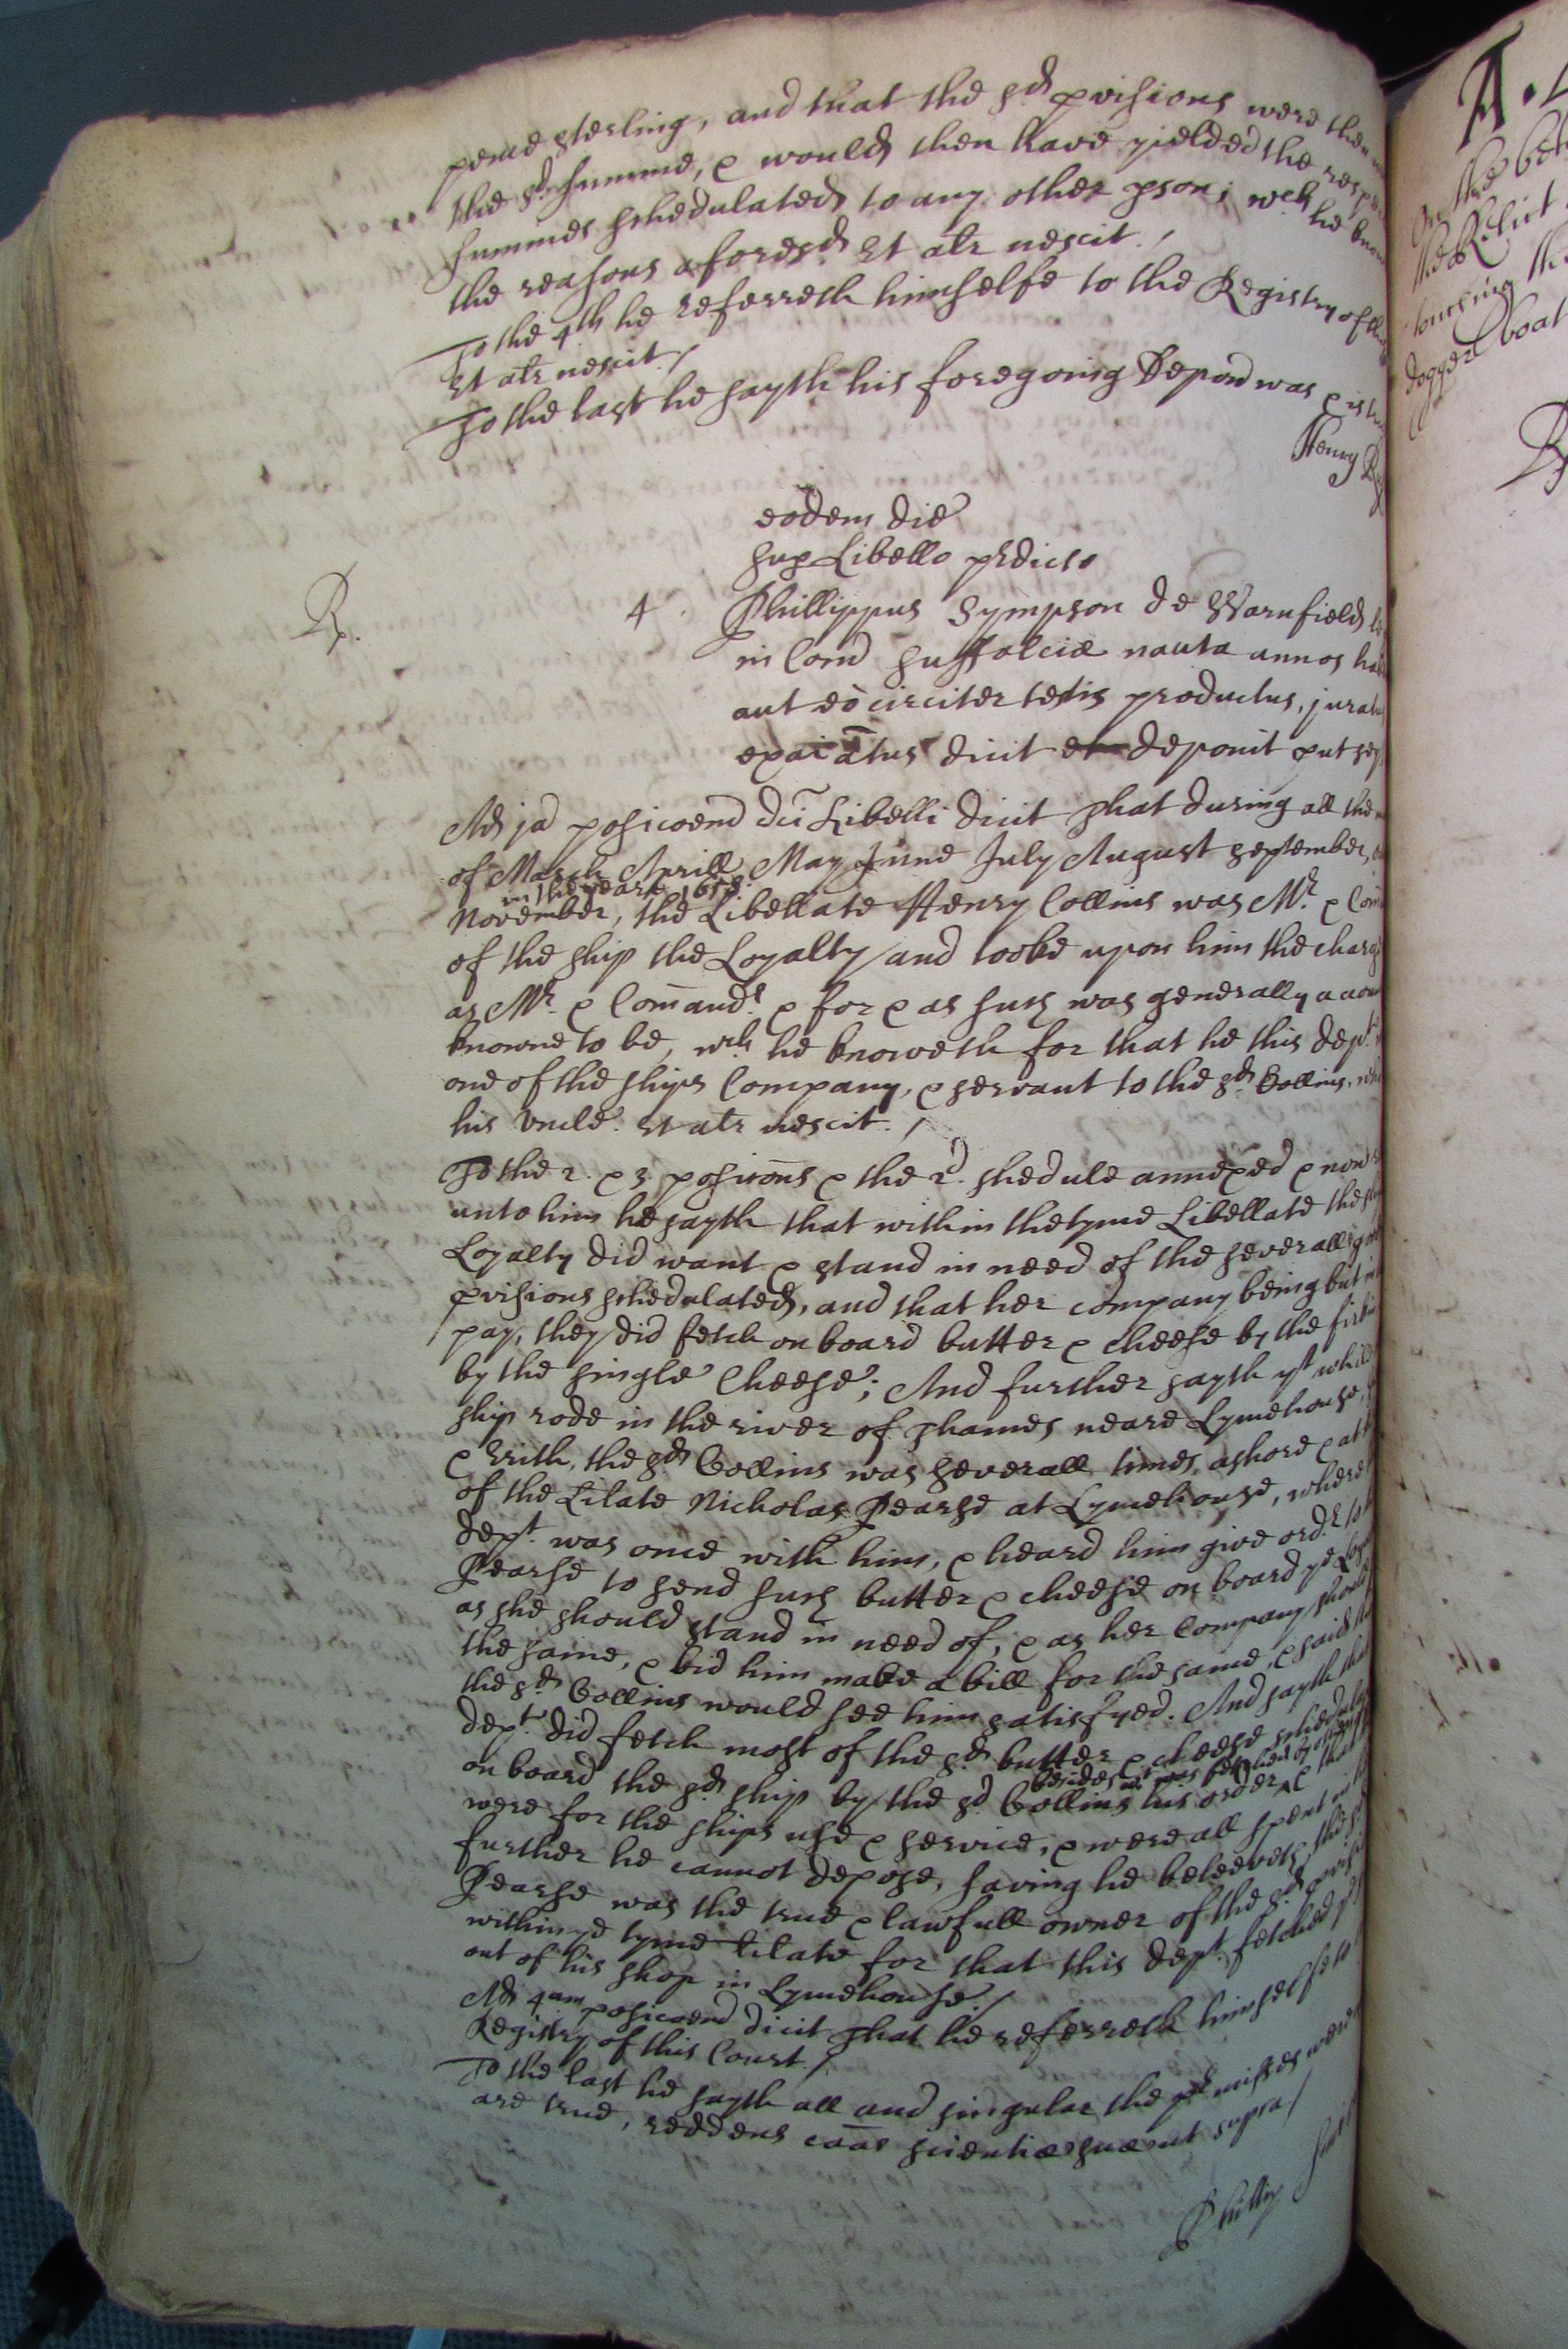 pence sterling, and that the sd pvisions were then
the sd summe, & would then have yielded the
summes schedulated to any other pson; wch he
the reasons aforesd. Et alr nescit./
To the 4th he referreth himselfe to the Registry of
Et alr nescit./
To the last he sayth his foregoing depon was & is
Henry
eodem die
sup Libello prdicto
R.
4. Phillippus Sympson de
in Com Suffolciæ nauta annos
aut eò circiter testis productus, jurat
exaiatus dicit et deponit put
Ad jā posicoem dci Libelli dicit That during all the
of March Aprill May June July August September,
in the yeare 1658.
November, the Libellate Henry Collins was Mr. &
of the ship the Loyalty and tooke upon him the charge
as Mr. & Comandr. & for & as such was generally
knowne to be, wch he knoweth for that he this dept.
one of the ships Company, & servant to the sd Collins,
his Uncle. Et alr nescit./
To the 2. & 3. posicons & the 2d. shedule annexed & now
unto him he sayth that within the tyme Libellate the
Loyalty did want & stand in need of the severall
pvisions schedulated, and that her company being but
pay, they did fetch on board butter & cheese by the
by the single Cheese; And further sayth yt
ship rode in the river of Thames neare Lymehouse,
& Erith, the sd Collins was severall times ashore & at
of the Lilate Nicholas Pearse at Lymehouse, where
dept. was once with him, & heard him give ordr to
Pearse to send such butter & cheese on board ye
as she should stand in need of, & as her Company
the same, & bid him make a bill for the same, & said
the sd Collins would see him satisfyed. And sayth that
dept. did fetch most of the sd butter & cheese
besides wt was fetched by
on board the sd ship by the sd Collins his order, & that
were for the ships use & service, & were all spent
further he cannot depose, saving he beleeveth the
Pearse was the true & lawfull owner of the sd
within ye tyme Lilate for that this dept. fetched
out of his shop in Lymehouse./
Ad 4am posicoem dicit That he referreth himselfe to
Registry of this Court./
To the last he sayth all and singular the prmisses were
are true, reddens caas scientiæ suæ ut supra./
Phillip